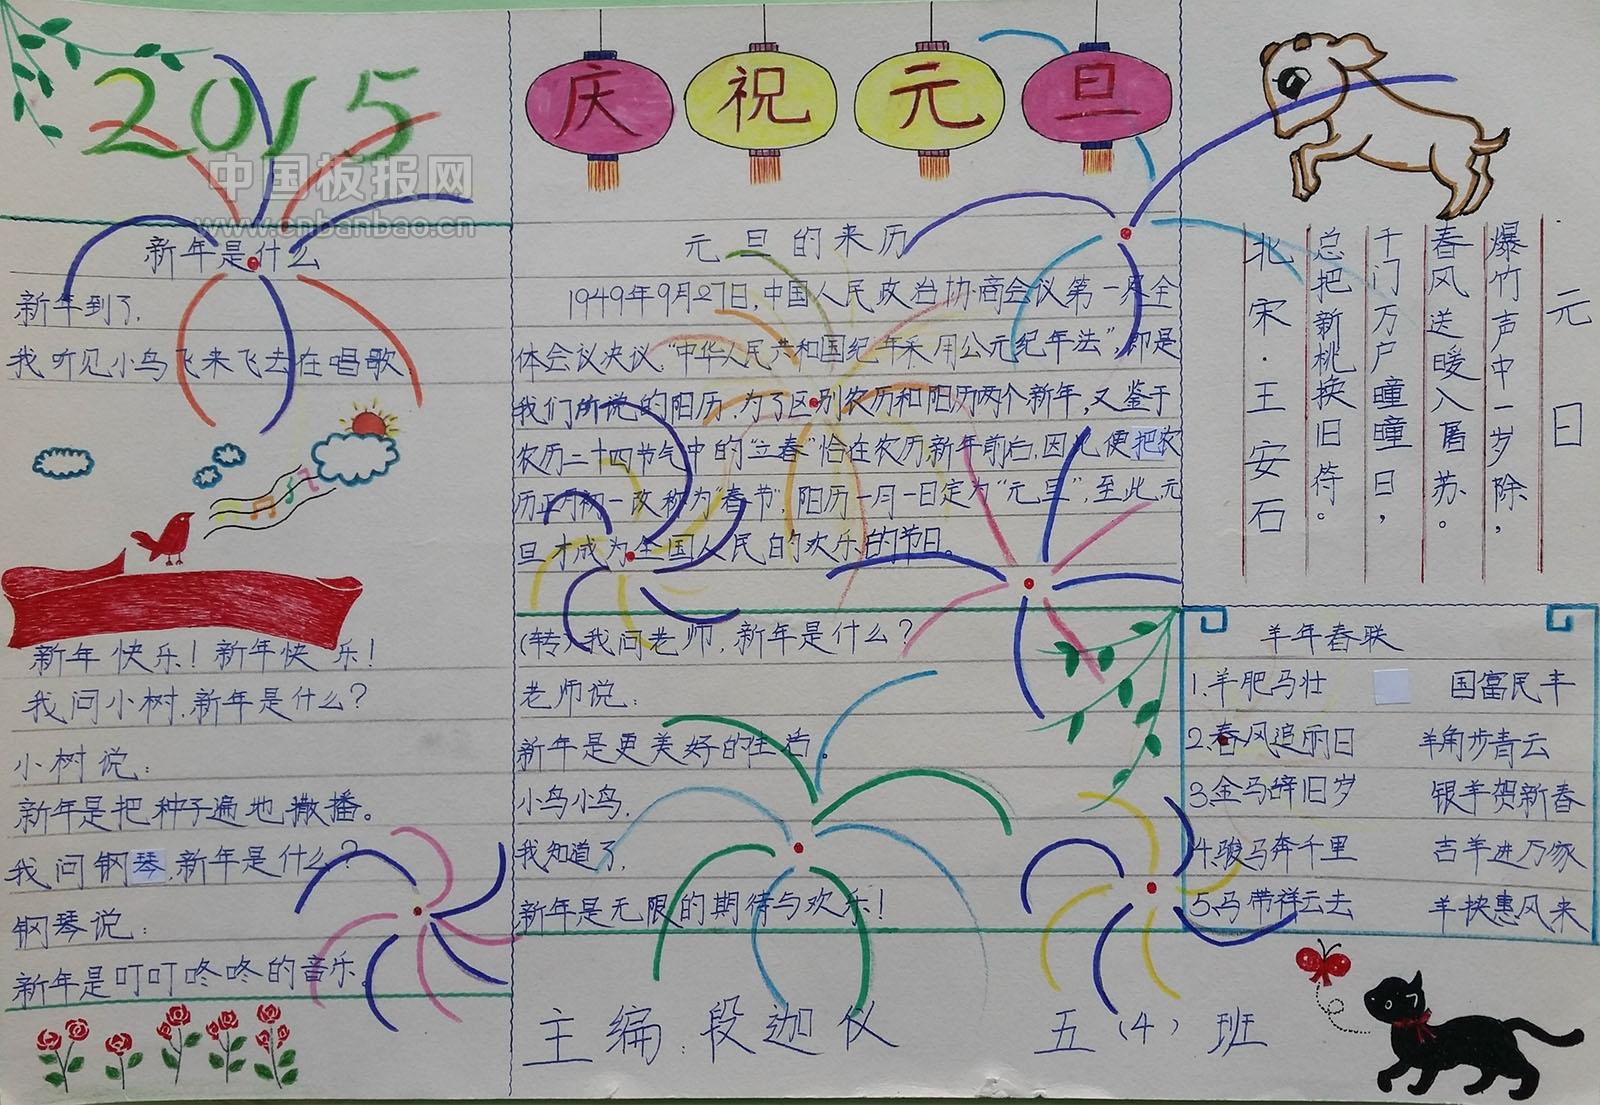 2015
中国板报网
www.cnbanbao.cn
新年是什么
新年到了,
我听见小鸟飞来飞去在唱歌
新年快乐！新年快乐！
我问小树,新年是什么？
小树说：
新年是把种子遍地撒播。
我问钢琴,新年是什么？
钢琴说：
新年是叮叮咚咚的音乐。
庆祝元旦
元旦的来历
1949年9月27日,中国人民政治协商会议第一届全
体会议决议:“中华人民共和国纪年采用公元纪年法”,即是
我们所说的阳历,为了区别农历和阳历两个新年,又鉴于
农历二十四节气中的“立春”恰在农历新年前后,因此便把农
历正月初一改称为“春节”,阳历一月一日定为“元旦”,至此,元
旦才成为全国人民的欢乐的节日。
(转)我问老师,新年是什么？
老师说：
新年是更美好的生活。
小鸟小鸟,
我知道了,
新年是无限的期待与欢乐！
元日
爆竹声中一岁除，
春风送暖入屠苏。
千门万户瞳瞳日，
总把新桃换旧符。
北宋·王安石
羊年春联
1.羊肥马壮 国富民丰
2.春风追丽日 羊角步青云
3.金马辞旧岁 银羊贺新春
4.骏马奔千里 吉羊进万家
5.马带祥云去 羊挟惠风来
主编：段迦仪 五（4）班